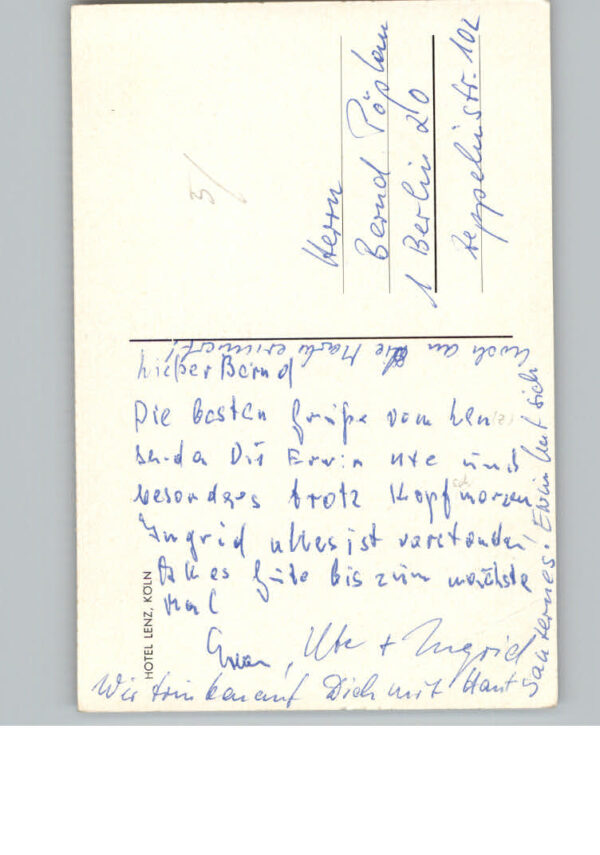 Herrn
Bernd Pöplau
1 Berlin 20
Zeppelinstr. 102
Lieber Bernd
Die besten Grüße vom Lenz
senda Dir Erwin Ute und
besonders trotz Kopfschmerzen
Ingrid alles ist verstanden!
Alles Gute bis zum nächste
Mal
Erwin, Ute + Ingrid
Wir trinken auf Dich mit Haut
Sauternes! Erwin hat sich
noch an die Marke erinnert!
HOTEL LENZ, KÖLN
3/